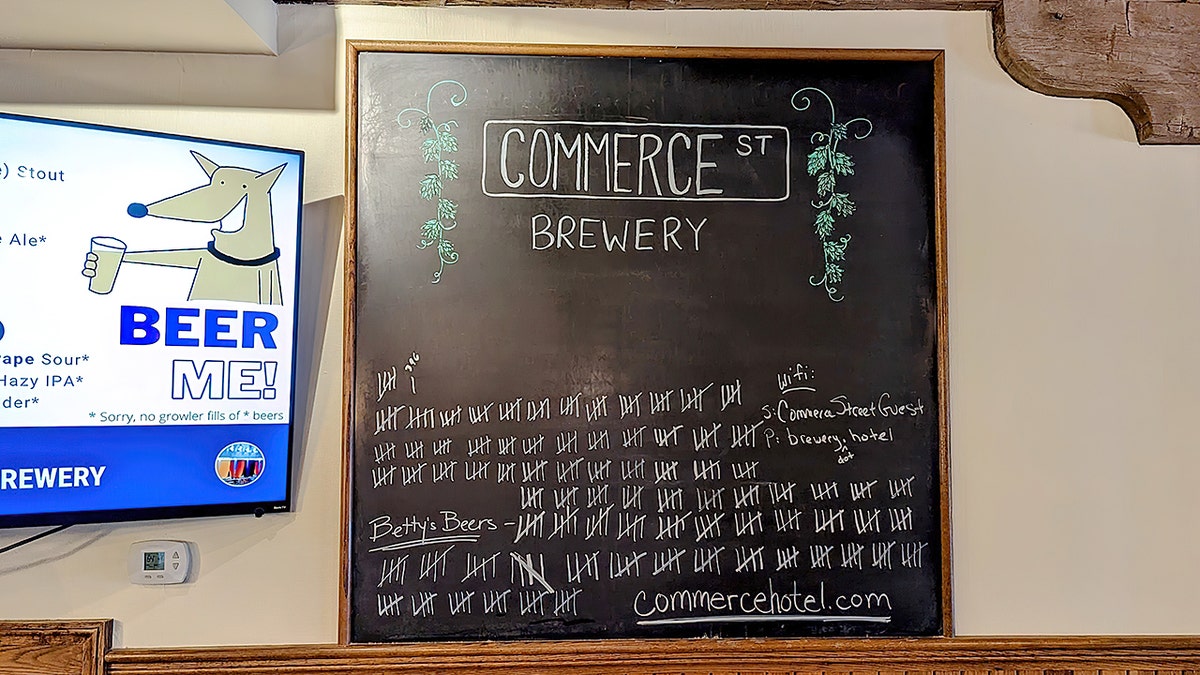 ) Stout
Ale*
ape Sour*
Hazy IPA*
der*
BEER
ME!
* Sorry, no growler fills of * beers
REWERY
COMMERCE ST
BREWERY
Wifi:
S: CommerceStreetGuest
P: brewery.hotel
dot
Betty's Beers -
commercehotel.com